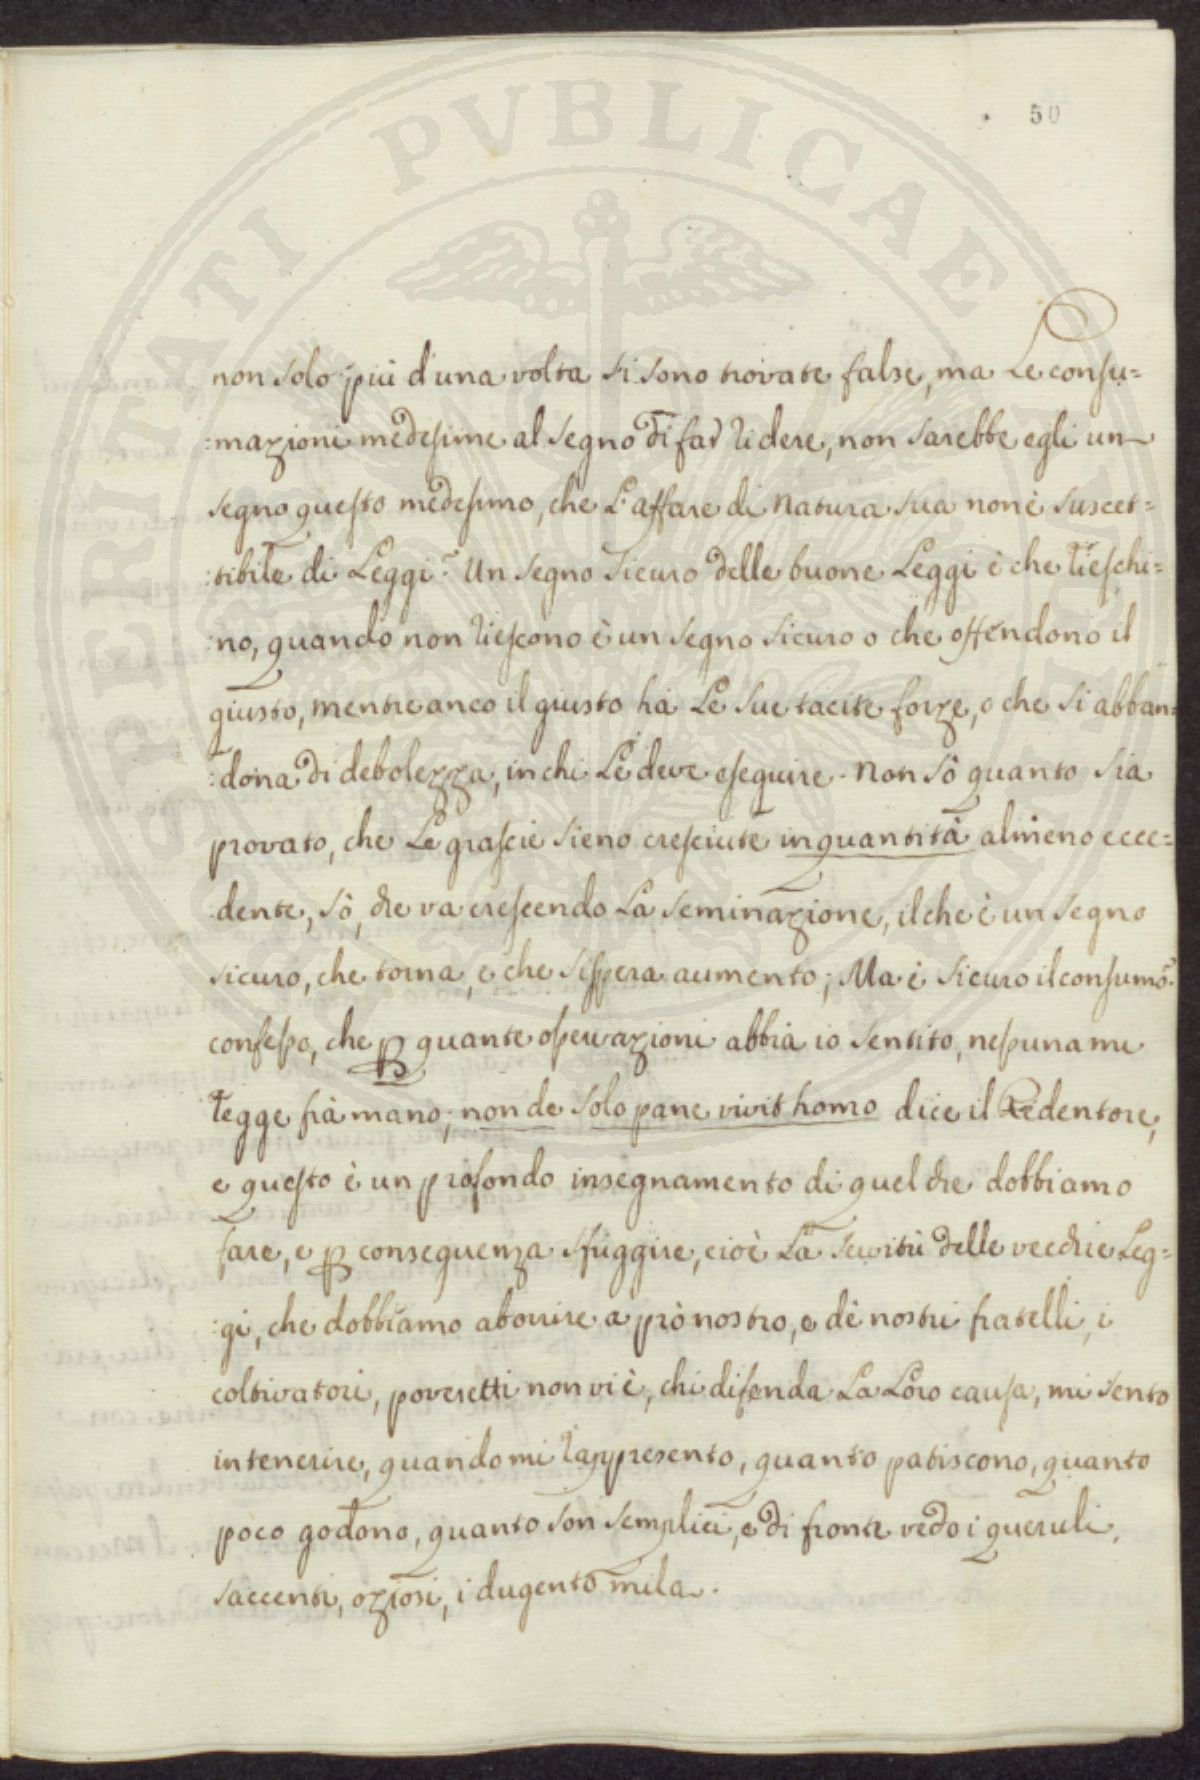 50
non solo più d'una volta si sono trovate false, ma Le consu=
:mazioni medesime al segno di far ridere, non sarebbe egli un
segno questo medesimo, che L'affare di Natura sua non è suscet=
:tibile di Leggi? Un segno sicuro delle buone Leggi è che rieschi=
:no, quando non riescono è un segno sicuro o che offendono il
giusto, mentre anco il giusto ha Le sue tacite forze, o che si abban=
:dona di debolezza, in chi Le deve eseguire. Non sò quanto sia
provato, che Le grascie sieno cresciute in quantità almeno ecce=
:dente, sò, che va crescendo La seminazione, il che è un segno
sicuro, che torna, e che si spera aumento; Ma è sicuro il consumo?
confesso, che p quante osservazioni abbia io sentito, nessuna mi
regge frà mano; non de solo pane vivit homo dice il Redentore,
e questo è un profondo insegnamento di quel che dobbiamo
fare, e p conseguenza sfuggire, cioè La servitù delle vecchie Leg=
:gi, che dobbiamo aborrire a prò nostro, e dè nostri fratelli, i
coltivatori, poveretti non vi è, chi difenda La Loro causa, mi sento
intenerire, quando mi rappresento, quanto patiscono, quanto
poco godono, quanto son semplici, e di fronte vedo i queruli,
saccenti, oziosi, i dugento mila.
PROSPERITATI PVBLICAE